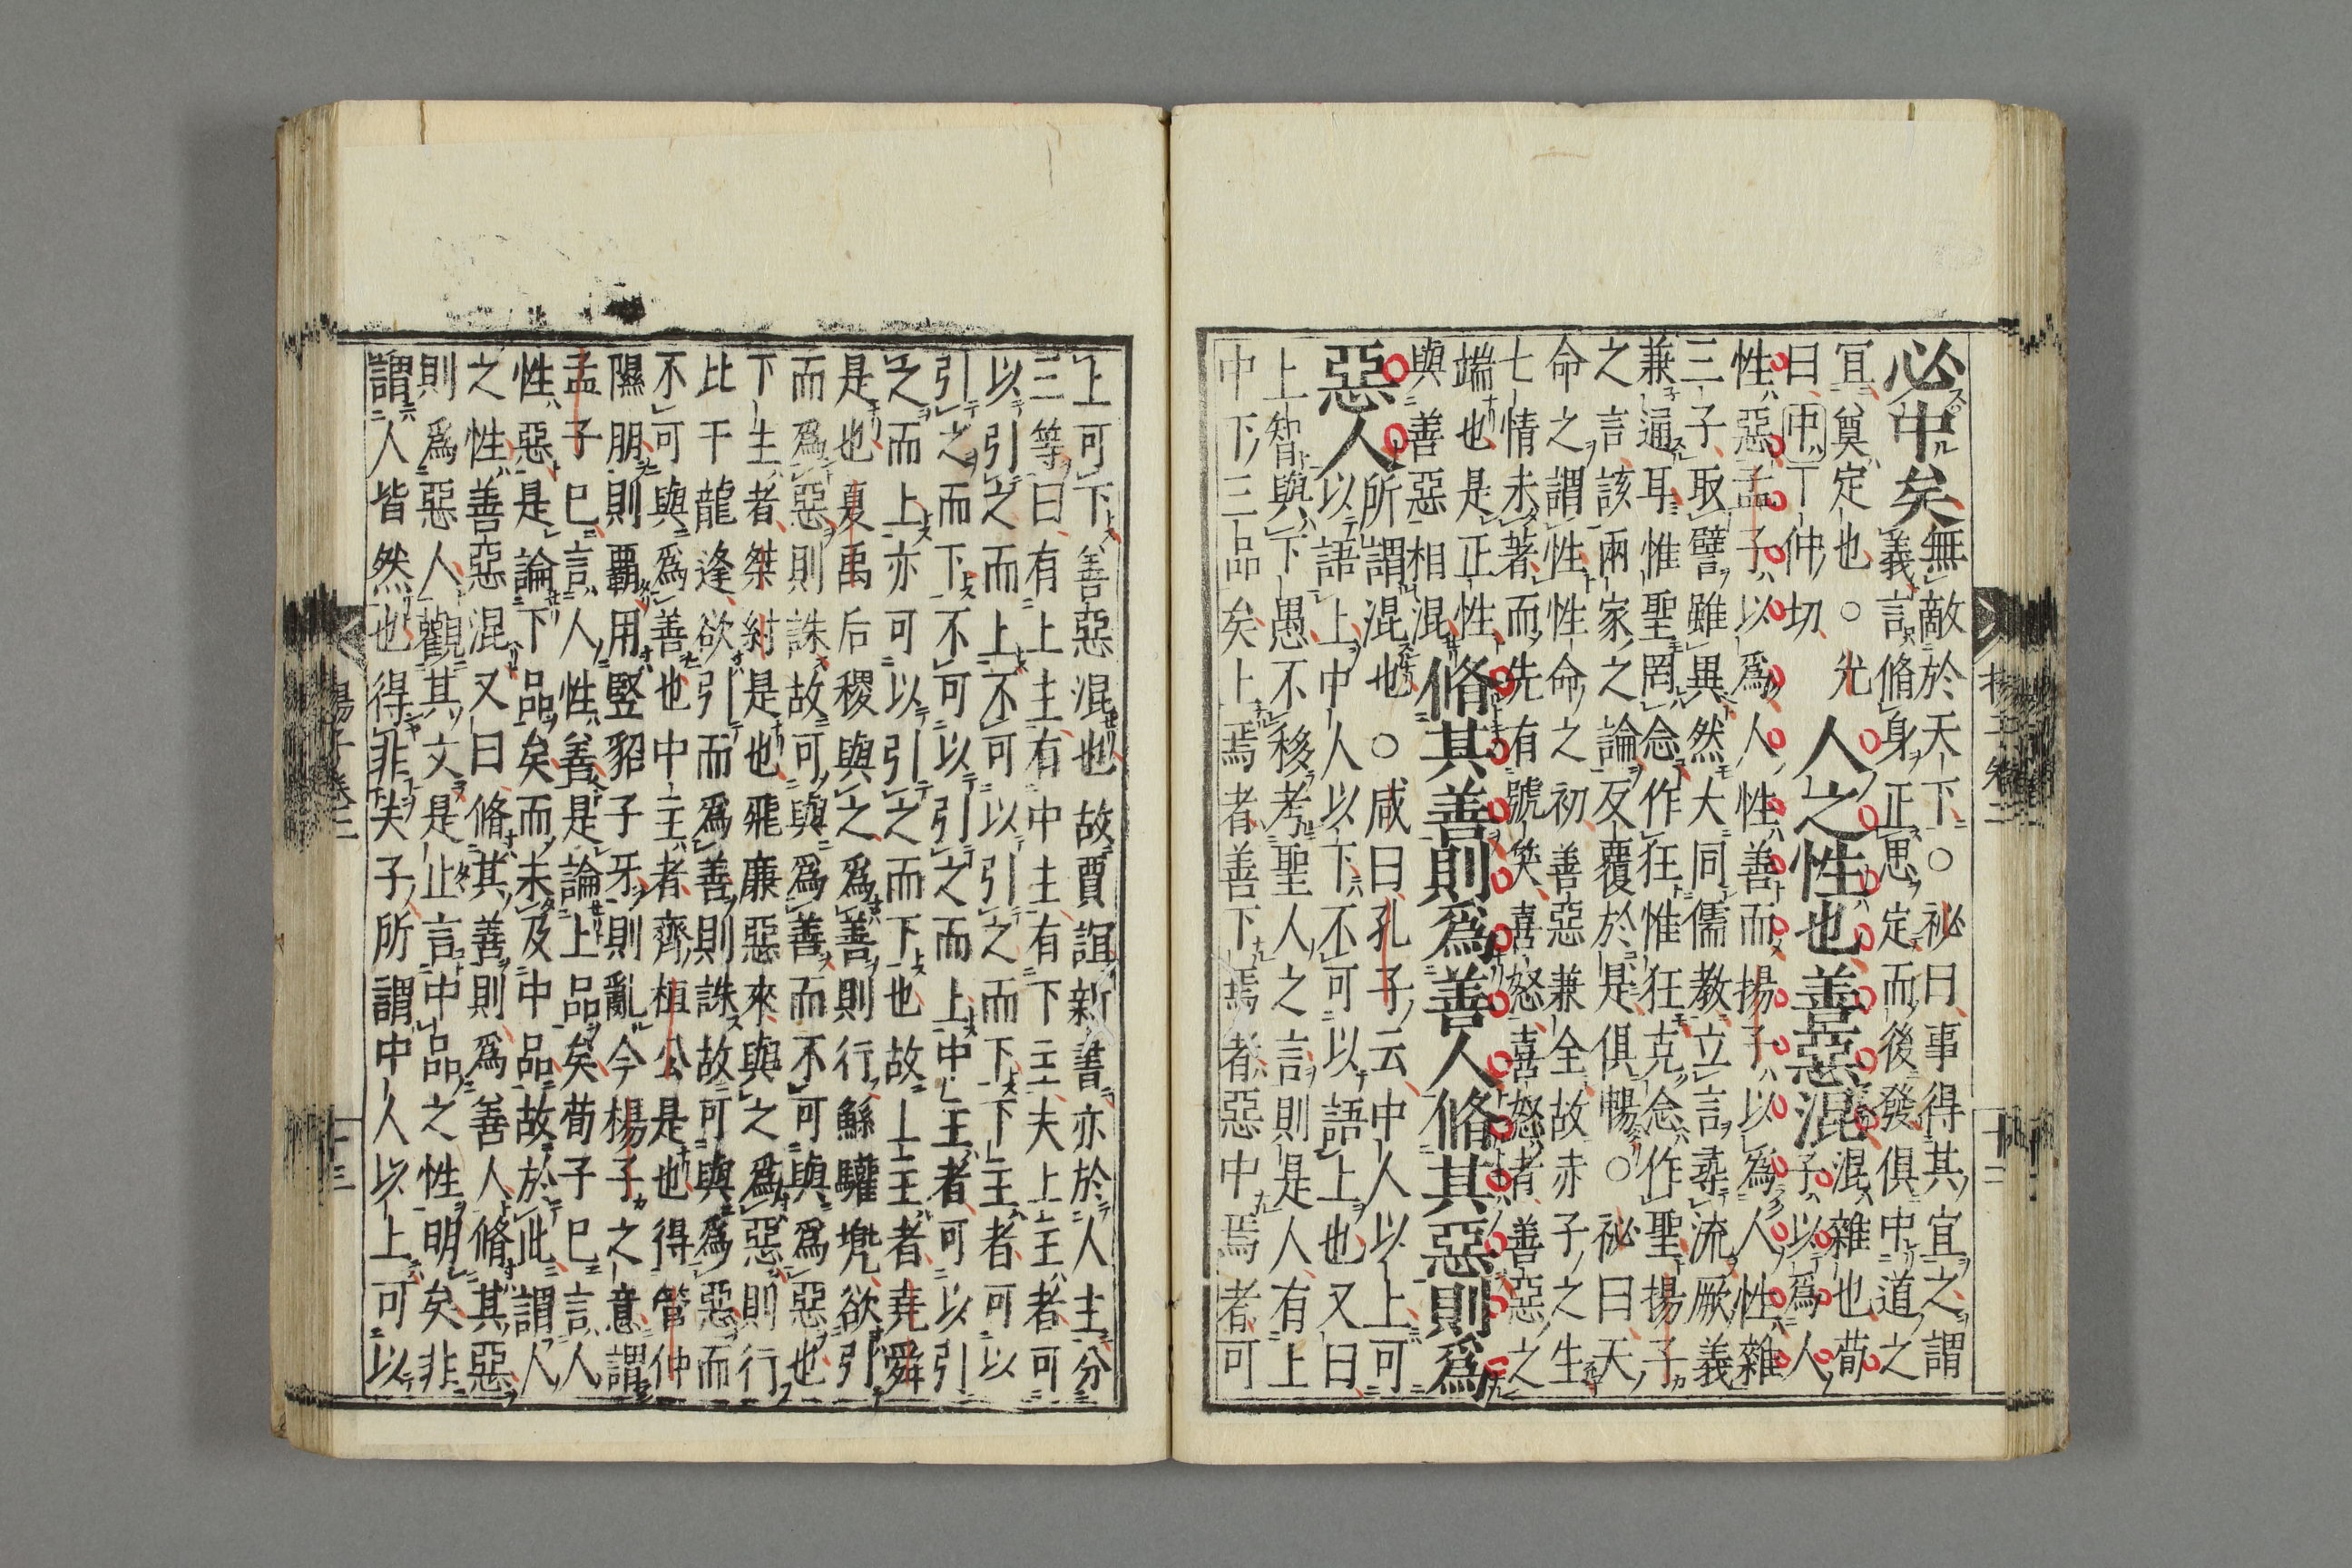 必中矣
無敵於天下○祕曰事得其宜之謂
義言脩身正思定而後發俱中道之
宜奠定也○光
曰中丁仲切
人之性也善惡混
混雜也荀
子以爲人
性惡孟子以爲人性善而揚子以爲人性雜
三子取譬雖異然大同儒教立言尋流厥義
兼通耳惟聖罔念作狂惟狂克念作聖揚子
之言該兩家之論反覆於是俱暢○祕曰天
命之謂性性命之初善惡兼全故赤子之生
七情未著而先有號笑喜怒喜怒者善惡之
端也是正性
與善惡相混
脩其善則爲善人脩其惡則爲
惡人
所謂混也○咸曰孔子云中人以上可
以語上中人以下不可以語上也又曰
上智與下愚不移考聖人之言則是人有上
中下三品矣上焉者善下焉者惡中焉者可
上可下善惡混也故賈誼新書亦於人主分
三等曰有上主有中主有下主夫上主者可
以引之而上不可以引之而下下主者可以
引之而下不可以引之而上中主者可以引
之而上亦可以引之而下也故上主者堯舜
是也夏禹后稷與之爲善則行鯀驩兠欲引
而爲惡則誅故可與爲善而不可與爲惡也
下主者桀紂是也飛廉惡來與之爲惡則行
比干龍逢欲引而爲善則誅故可與爲惡而
不可與爲善也中主者齊桓公是也得管仲
隰朋則覇用竪貂子牙則亂今楊子之意謂
孟子巳言人性善是論上品矣荀子巳言人
性惡是論下品矣而未及中品故於此謂人
之性善惡混又曰脩其善則爲善人脩其惡
則爲惡人觀其文是止言中品之性明矣非
謂人皆然也得非夫子所謂中人以上可以